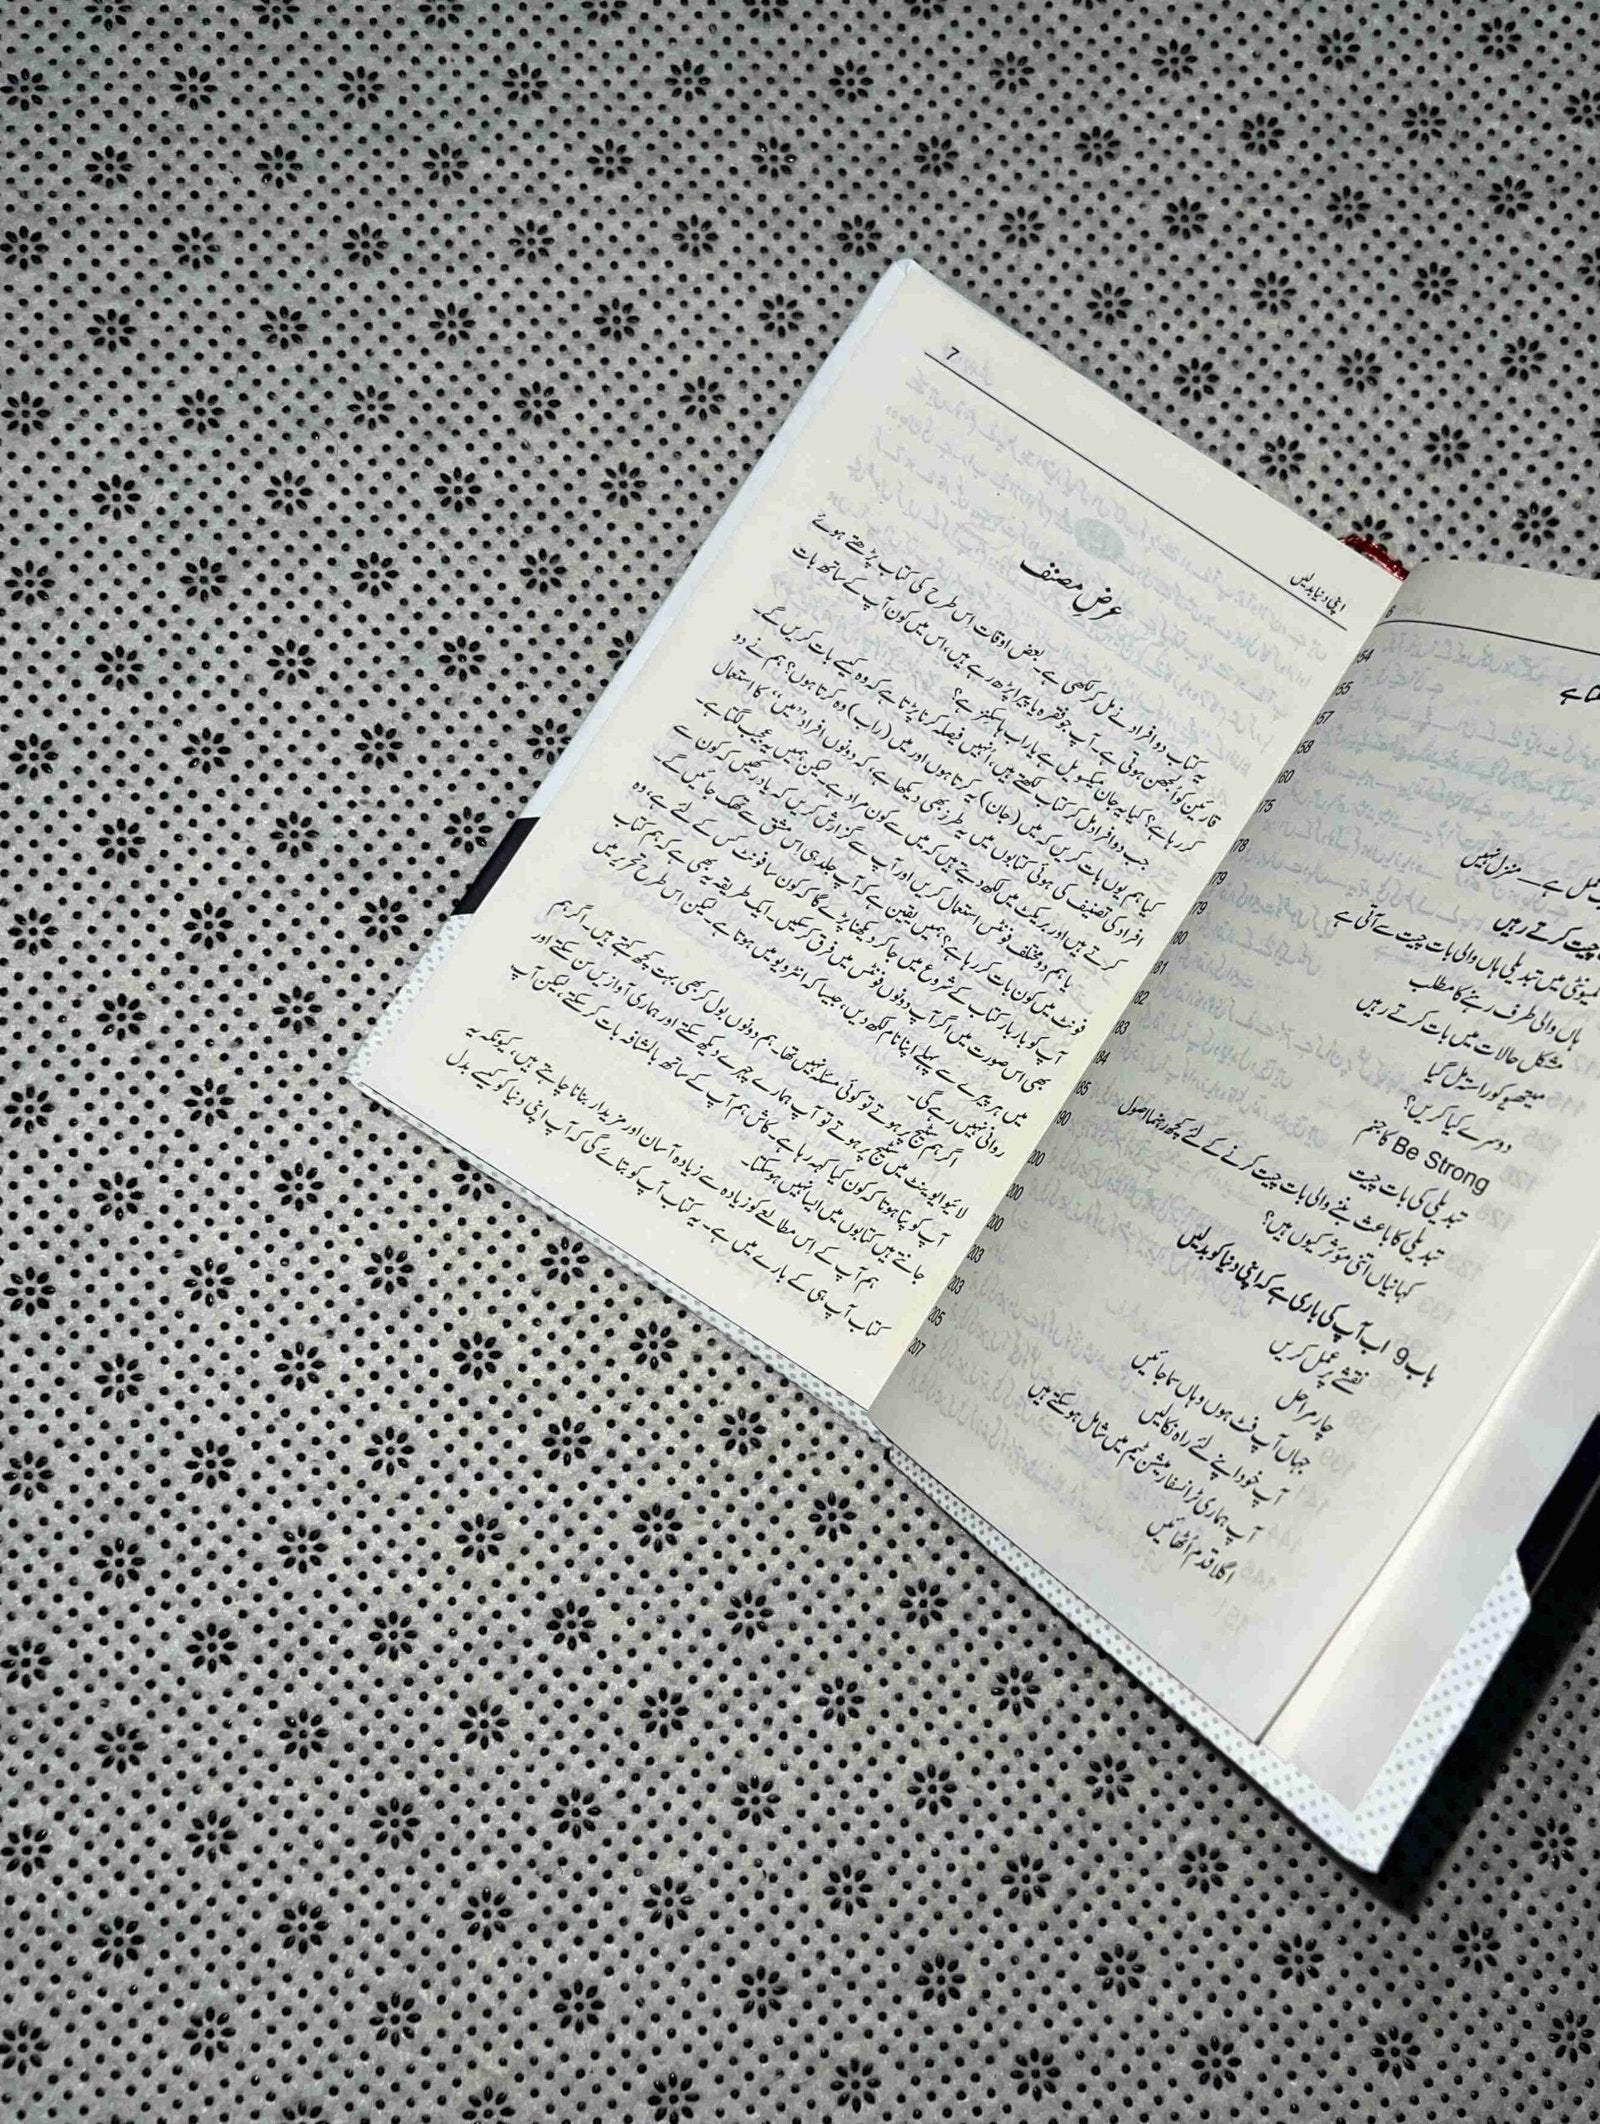 اپنی دنیا بدلیں
7
عرضِ مصنف
یہ کتاب دو افراد نے مل کر لکھی ہے۔ بعض اوقات اس طرح کی کتاب پڑھتے ہوئے
قارئین کو اُلجھن ہوتی ہے۔ آپ جو فقرہ یا پیرا پڑھ رہے ہیں، اس میں کون آپ کے ساتھ بات
کر رہا ہے؟ کیا یہ جان میکسویل ہے یا راب ہاسکنز ہے؟
جب دو افراد مل کر کتاب لکھتے ہیں، اُنہیں فیصلہ کرنا پڑتا ہے کہ وہ کیسے بات کریں گے۔
کیا ہم یوں بات کریں کہ میں (جان) یہ کرتا ہوں اور میں (راب) وہ کرتا ہوں؟ ہم نے دو
افراد کی تصنیف کی ہوئی کتابوں میں یہ طرز بھی دیکھا ہے، کہ دونوں افراد ’’میں‘‘ کا استعمال
کرتے ہیں اور بریکٹ میں لکھ دیتے ہیں کہ میں سے کون مراد ہے۔ لیکن ہمیں یہ عجیب لگتا ہے۔
یا ہم دو مختلف فونٹس استعمال کریں اور آپ سے گزارش کریں کہ یاد رکھیں کہ کون سے
فونٹ میں کون بات کر رہا ہے؟ ہمیں یقین ہے کہ آپ جلد ہی اس مشق سے تھک جائیں گے۔
آپ کو بار بار کتاب کے شروع میں جا کر دیکھنا پڑے گا کہ کون سا فونٹ کس کے لئے ہے، وہ
بھی اس صورت میں اگر آپ دونوں فونٹس میں فرق کر سکیں۔ ایک طریقہ یہ بھی ہے کہ ہم کتاب
میں ہر پیرے سے پہلے اپنا نام لکھ دیں، جیسا کہ انٹرویو میں ہوتا ہے۔ لیکن اس طرح تحریر میں
روانی نہیں رہے گی۔
اگر ہم سٹیج پر ہوتے تو کوئی مسئلہ نہیں تھا۔ ہم دونوں بول کر بھی بہت کچھ کہتے ہیں۔ اگر ہم
لائیو ایوینٹ میں سٹیج پر ہوتے تو آپ ہمارے چہرے دیکھ سکتے اور ہماری آوازیں سن سکتے اور
آپ کو پتا ہوتا کہ کون کیا کہہ رہا ہے۔ کاش ہم آپ کے ساتھ بالمشافہ بات کر سکتے، لیکن آپ
جانتے ہیں کتابوں میں ایسا نہیں ہو سکتا۔
ہم آپ کے اس مطالعے کو زیادہ سے زیادہ آسان اور مزیدار بنانا چاہتے ہیں، کیونکہ یہ
کتاب آپ ہی کے بارے میں ہے۔ یہ کتاب آپ کو بتائے گی کہ آپ اپنی دنیا کو کیسے بدل
6
منزل نہیں
بات چیت کرتے رہیں
کمیونٹی میں تبدیلی ہاں والی بات چیت سے آتی ہے
ہاں والی طرف رہنے کا مطلب
مشکل حالات میں بات کرتے رہیں
میتھیو کو راستہ مل گیا
دوسرے کیا کریں؟
Be Strong کا جنم
تبدیلی کی بات چیت
تبدیلی کا باعث بننے والی بات چیت کرنے کے لئے کچھ رہنما اصول
کہانیاں اتنی مؤثر کیوں ہیں؟
باب 9 اب آپ کی باری ہے کہ اپنی دنیا کو بدلیں
نقشے پر عمل کریں
چار مراحل
جہاں آپ فٹ ہوں وہاں سما جائیں
آپ خود اپنے لئے راہ نکالیں
آپ ہماری ٹرانسفارمیشن ٹیم میں شامل ہو سکتے ہیں
اگلا قدم اُٹھائیں
200
200
200
203
203
205
207